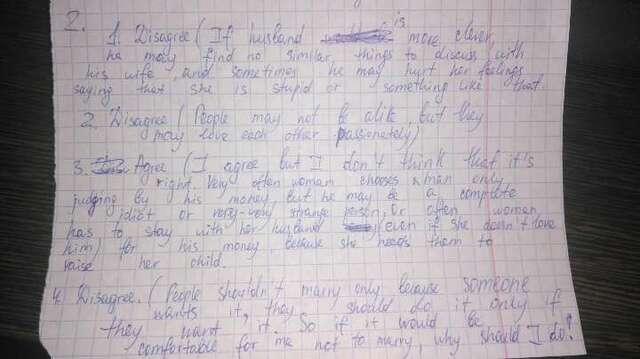 I.
1. Disagree (If husband is more clever,
he may find no similar things to discuss with
his wife, and sometimes he may hurt her feelings
saying that she is stupid or something like that.
2. Disagree (People may not be alike, but they
may love each other passionately)
3. Agree (I agree but I don't think that it's
right. Very often woman chooses a man only
judging by his money, but he may be a complete
idiot or very-very strange person, or often woman
has to stay with her husband (even if she doesn't love
him) for his money, because she needs them to
raise her child.
4. Disagree. (People shouldn't marry only because someone
wants it, they should do it only if
they want it. So if it would be
comfortable for me not to marry, why should I do?